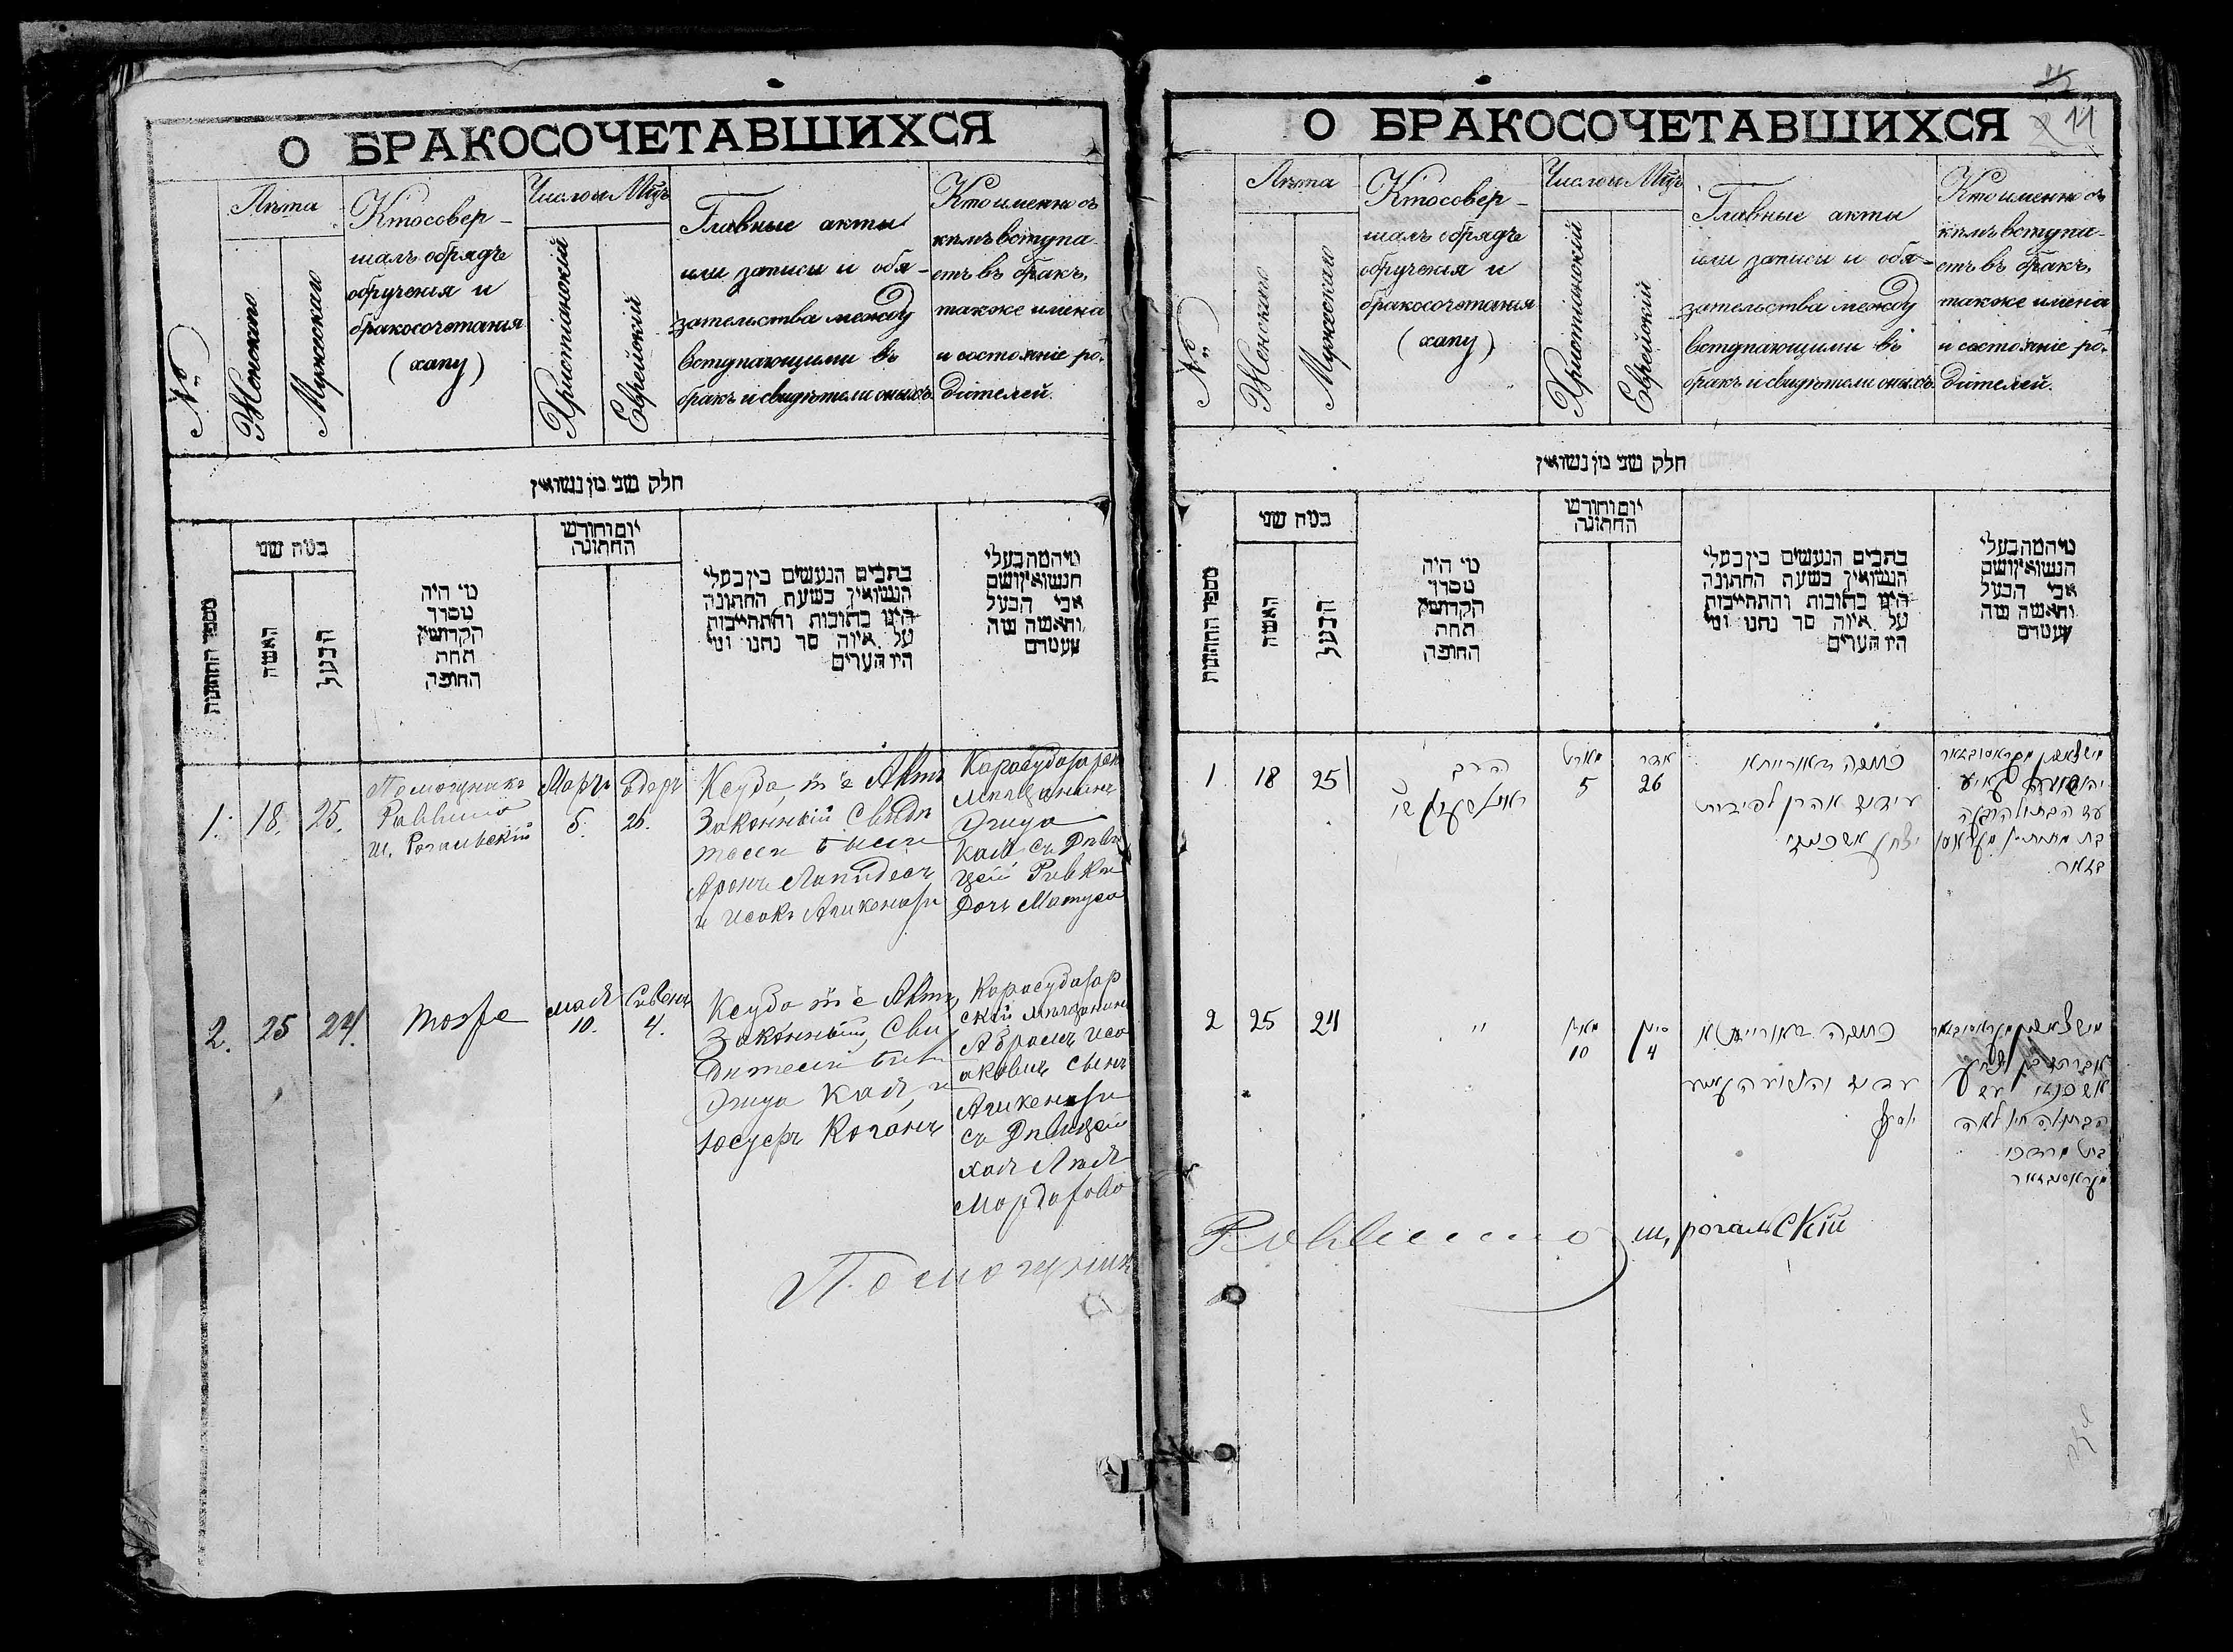 О БРАКОСОЧЕТАВШИХСЯ
№
Лѣта
Женскаго
Мужескаго
Кто совер-
шалъ обрядъ
обрученія и
бракосочетанія
(хапу)
Число и Мцъ
Христіанскій
Еврейскій
Главные акты
или записи и обя-
зательства между
вступающими въ
бракъ и свидѣтели оныхъ.
Кто именно съ
кѣмъ вступа-
етъ въ бракъ,
также имена
и состояніе ро-
дителей.
חלק שני מן נשואין
מספר החתונות
כמה שני
האשה
הבעל
מי היה
מסדר
הקדושין
תחת
החופה
יום וחודש
החתונה
כתבים הנעשים בין בעלי
הנשואין בשעת החתונה
היינו כתובות והתחייבות
על איזה סך נתנו ומי
היו הערים
מי המה בעלי
הנשואין ושם
אבי הבעל
והאשה
1. 18. 25.
Помощникъ
Раввина
Ш. Рогальскій
Мартъ
5.
Адаръ
26.
Ксуба, т е Актъ
Законный Свѣдѣ
тели были
Аронъ Лапидесъ
и Исакъ Ашкенази
Карасубазарск
мѣщанинъ
Кая съ Дѣви
цей Ривка
Дочь Матуса
2. 25 24.
тоже
мая
10.
Сивенъ
4.
Ксуба т е Актъ
Законный, Сви
дѣтели были
Кая, и
Юсуфъ Коганъ
Карасубазар
скій мѣщанинъ
Абрамъ Иса
аковичъ сынъ
Ашкенази
съ Дѣвицей
хая Лея
Помощник
О БРАКОСОЧЕТАВШИХСЯ
11
№
Лѣта
Женскаго
Мужескаго
Кто совер-
шалъ обрядъ
обрученія и
бракосочетанія
(хапу)
Число и Мцъ
Христіанскій
Еврейскій
Главные акты
или записи и обя-
зательства между
вступающими въ
бракъ и свидѣтели оныхъ.
Кто именно съ
кѣмъ вступа-
етъ въ бракъ,
также имена
и состояніе ро-
дителей.
חלק שני מן נשואין
מספר החתונות
כמה שני
האשה
הבעל
מי היה
מסדר
הקדושין
תחת
החופה
יום וחודש
החתונה
כתבים הנעשים בין בעלי
הנשואין בשעת החתונה
היינו כתובות והתחייבות
על איזה סך נתנו ומי
היו הערים
מי המה בעלי
הנשואין ושם
אבי הבעל
והאשה
1 18 25
הרב
מארט
5
אדר
26
כתובה דאורייתא
אהרן לפידות
יצחק אשכנזי
2 25 24
"
מאי
10
סיון
4
כתובה דאורייתא
יוסף
אשכנזי
הבתולה חי' לאה
בת מרדכי
Раввина Ш, рогальскій